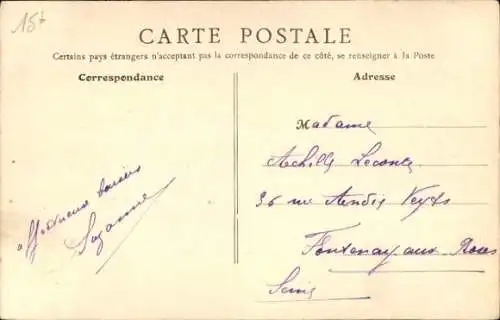 15t
CARTE POSTALE
Certains pays étrangers n'acceptant pas la correspondance de ce côté, se renseigner à la Poste
Correspondance
Adresse
Affectueux baisers
Suzanne
Madame
Achille Lecomte
36 rue
Fontenay aux Roses
Seine